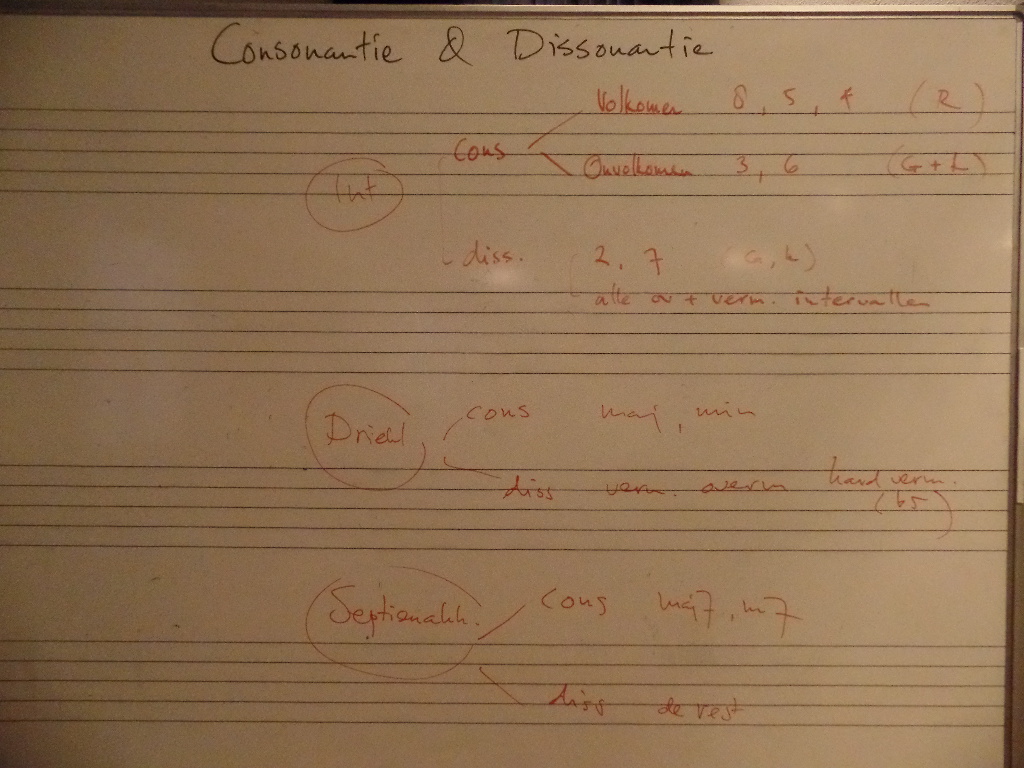 Consonantie & Dissonantie
Volkomen 8, 5, 4 (R)
cons
Onvolkomen 3, 6 (G+k)
Int
diss. 2, 7 (G, k)
alle ov + verm. intervallen
cons maj, min
Driekl
diss verm. overm hard verm.
(b5)
cons maj7, m7
Septiemakk.
diss de rest